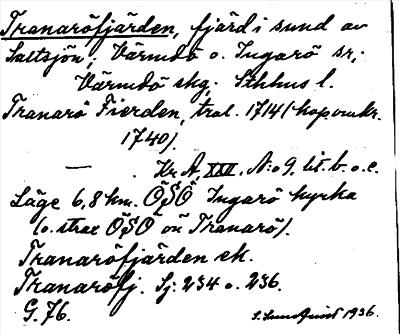 Tranaröfjärden, fjärd i sund av
Saltsjön; Värmdö o. Ingarö sr;
Värmdö skg. Sthlms l.
Tranarö Fierden, tral. 1714 (kop omkr.
1740).
— . Kr A, XXI, N:o 9 lit. b. o. c.
Läge 6,8 km. ÖSÖ Ingarö kyrka
(o. strax ÖSÖ om Tranarö).
Tranaröfjärden ek.
Tranaröfj. Sj: 234 o. 236.
G. 76.
S. Lundquist 1936.